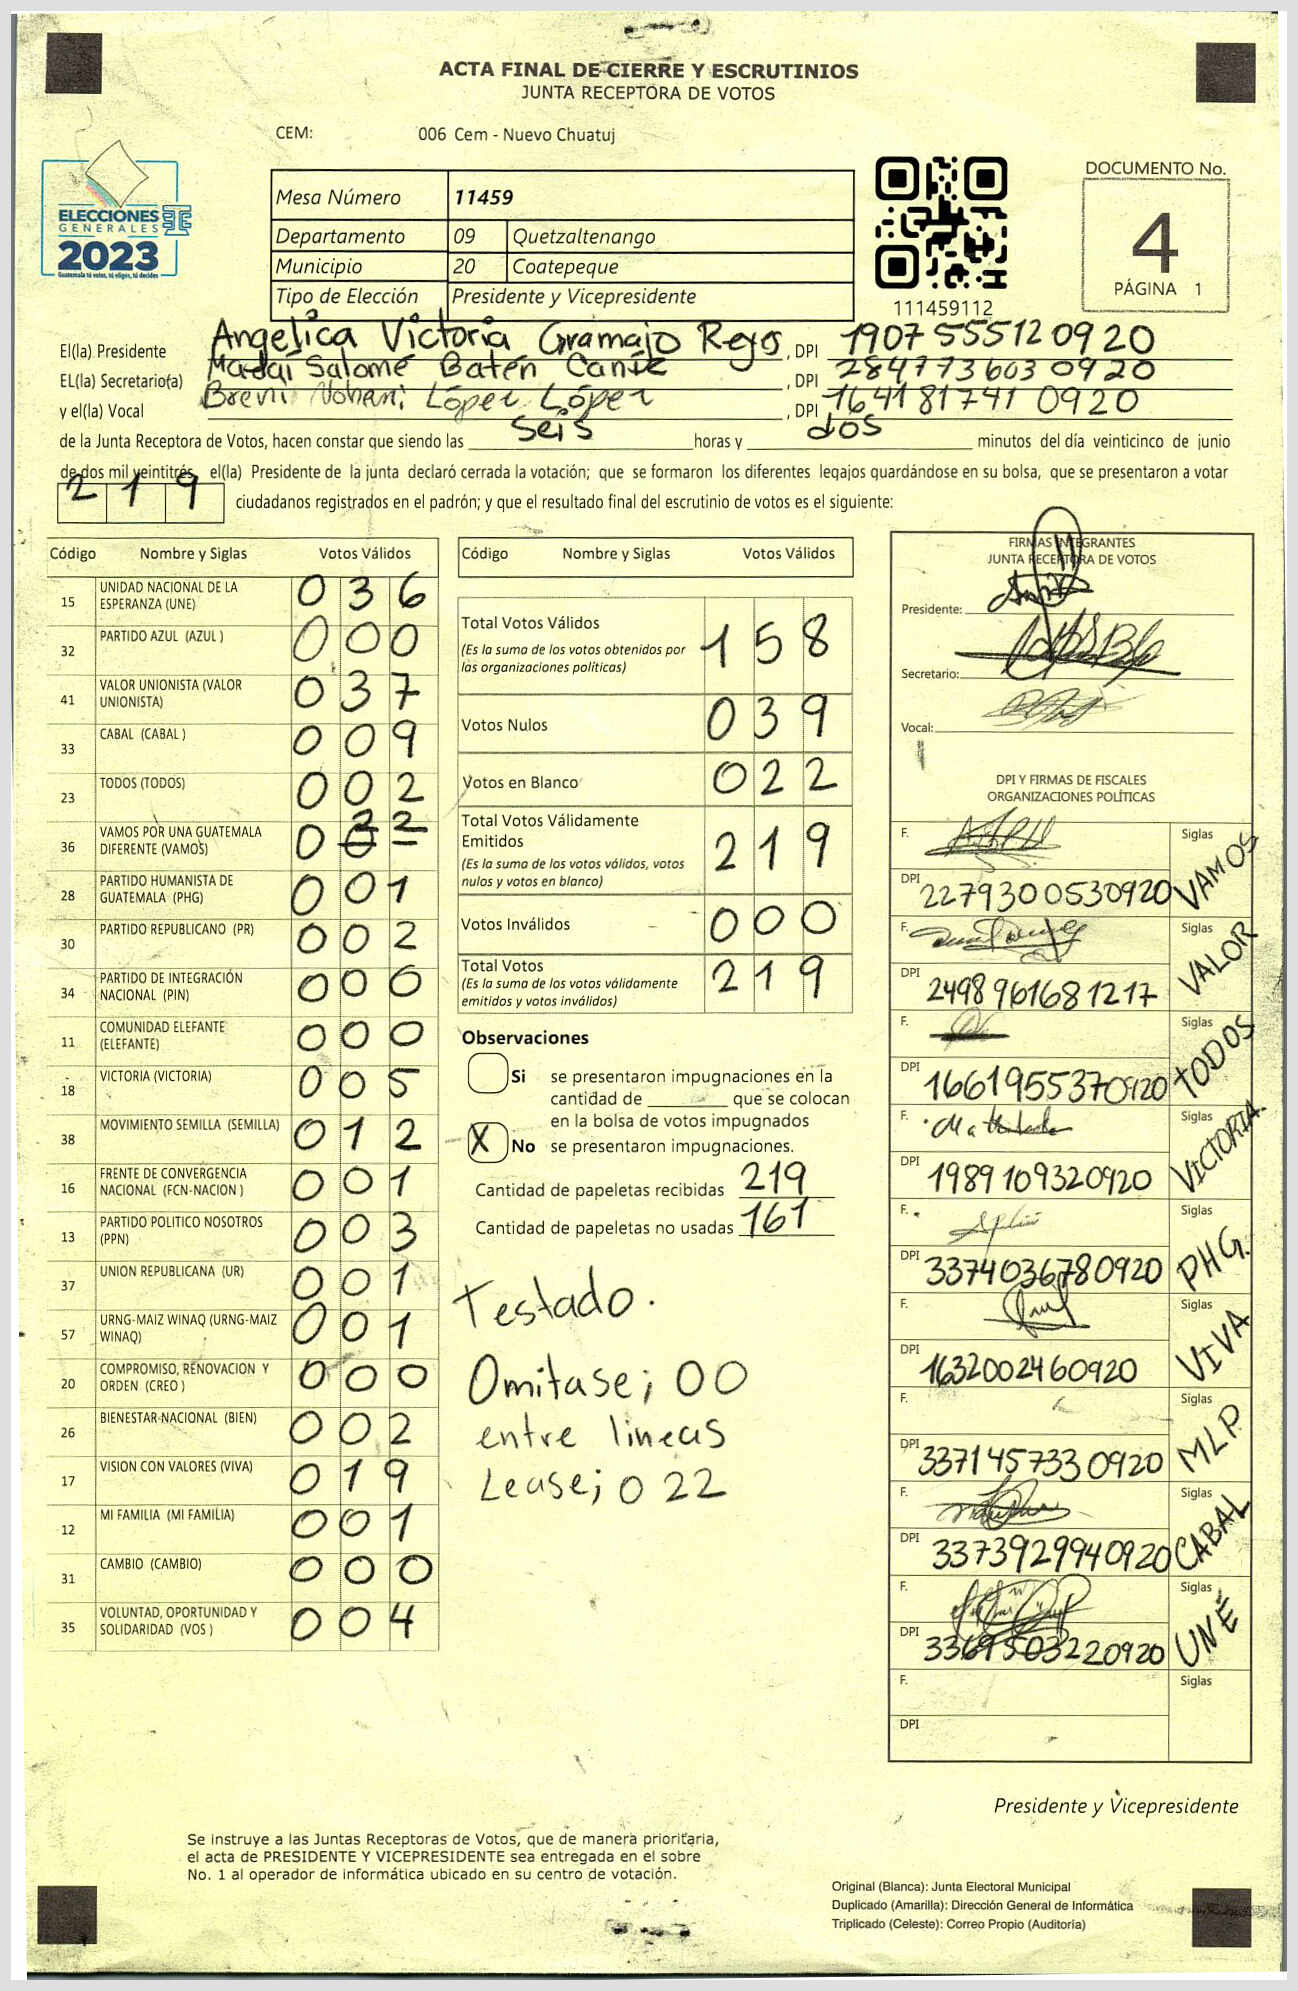 ACTA FINAL DE CIERRE Y ESCRUTINIOS
JUNTA RECEPTORA DE VOTOS
CEM: 006 Cem - Nuevo Chuatuj
ELECCIONES
GENERALES
2023
Guatemala tú votas, tú eliges, tú decides
Mesa Número 11459
Departamento 09 Quetzaltenango
Municipio 20 Coatepeque
Tipo de Elección Presidente y Vicepresidente
111459112
DOCUMENTO No.
4
PÁGINA 1
El(la) Presidente Angelica Victoria Gramajo Reyes, DPI 1907555120920
EL(la) Secretario(a) Madaí Salomé Batén Caníz, DPI 2847736030920
y el(la) Vocal Breni Nohemi López López, DPI 1641817410920
de la Junta Receptora de Votos, hacen constar que siendo las seis horas y dos minutos del día veinticinco de junio
de dos mil veintitrés, el(la) Presidente de la junta declaró cerrada la votación; que se formaron los diferentes legajos quardándose en su bolsa, que se presentaron a votar
219 ciudadanos registrados en el padrón; y que el resultado final del escrutinio de votos es el siguiente:
Código Nombre y Siglas Votos Válidos
15 UNIDAD NACIONAL DE LA ESPERANZA (UNE) 036
32 PARTIDO AZUL (AZUL ) 000
41 VALOR UNIONISTA (VALOR UNIONISTA) 037
33 CABAL (CABAL ) 009
23 TODOS (TODOS) 002
36 VAMOS POR UNA GUATEMALA DIFERENTE (VAMOS) 022
28 PARTIDO HUMANISTA DE GUATEMALA (PHG) 001
30 PARTIDO REPUBLICANO (PR) 002
34 PARTIDO DE INTEGRACIÓN NACIONAL (PIN) 000
11 COMUNIDAD ELEFANTE (ELEFANTE) 000
18 VICTORIA (VICTORIA) 005
38 MOVIMIENTO SEMILLA (SEMILLA) 012
16 FRENTE DE CONVERGENCIA NACIONAL (FCN-NACION ) 001
13 PARTIDO POLITICO NOSOTROS (PPN) 003
37 UNION REPUBLICANA (UR) 001
57 URNG-MAIZ WINAQ (URNG-MAIZ WINAQ) 001
20 COMPROMISO, RENOVACION Y ORDEN (CREO ) 000
26 BIENESTAR NACIONAL (BIEN) 002
17 VISION CON VALORES (VIVA) 019
12 MI FAMILIA (MI FAMILIA) 001
31 CAMBIO (CAMBIO) 000
35 VOLUNTAD, OPORTUNIDAD Y SOLIDARIDAD (VOS ) 004
Código Nombre y Siglas Votos Válidos
Total Votos Válidos 158
(Es la suma de los votos obtenidos por
las organizaciones políticas)
Votos Nulos 039
Votos en Blanco 022
Total Votos Válidamente
Emitidos 219
(Es la suma de los votos válidos, votos
nulos y votos en blanco)
Votos Inválidos 000
Total Votos 219
(Es la suma de los votos válidamente
emitidos y votos inválidos)
Observaciones
Si se presentaron impugnaciones en la
cantidad de ________ que se colocan
en la bolsa de votos impugnados
X No se presentaron impugnaciones.
Cantidad de papeletas recibidas 219
Cantidad de papeletas no usadas 161
Testado.
Omitase; 00
entre lineas
Lease; 022
FIRMAS INTEGRANTES
JUNTA RECEPTORA DE VOTOS
Presidente:
Secretario:
Vocal:
DPI Y FIRMAS DE FISCALES
ORGANIZACIONES POLÍTICAS
F. Siglas VAMOS
DPI 2279300530920
F. Siglas VALOR
DPI 2498961681217
F. Siglas TODOS
DPI 1661955370920
F. Siglas VICTORIA
DPI 1989109320920
F. Siglas PHG.
DPI 3374036780920
F. Siglas VIVA
DPI 1632002460920
F. Siglas MLP
DPI 3371457330920
F. Siglas CABAL
DPI 3373929940920
F. Siglas UNE
DPI 3369503220920
F. Siglas
DPI
Presidente y Vicepresidente
Se instruye a las Juntas Receptoras de Votos, que de manera prioritaria,
el acta de PRESIDENTE Y VICEPRESIDENTE sea entregada en el sobre
No. 1 al operador de informática ubicado en su centro de votación.
Original (Blanca): Junta Electoral Municipal
Duplicado (Amarilla): Dirección General de Informática
Triplicado (Celeste): Correo Propio (Auditoría)